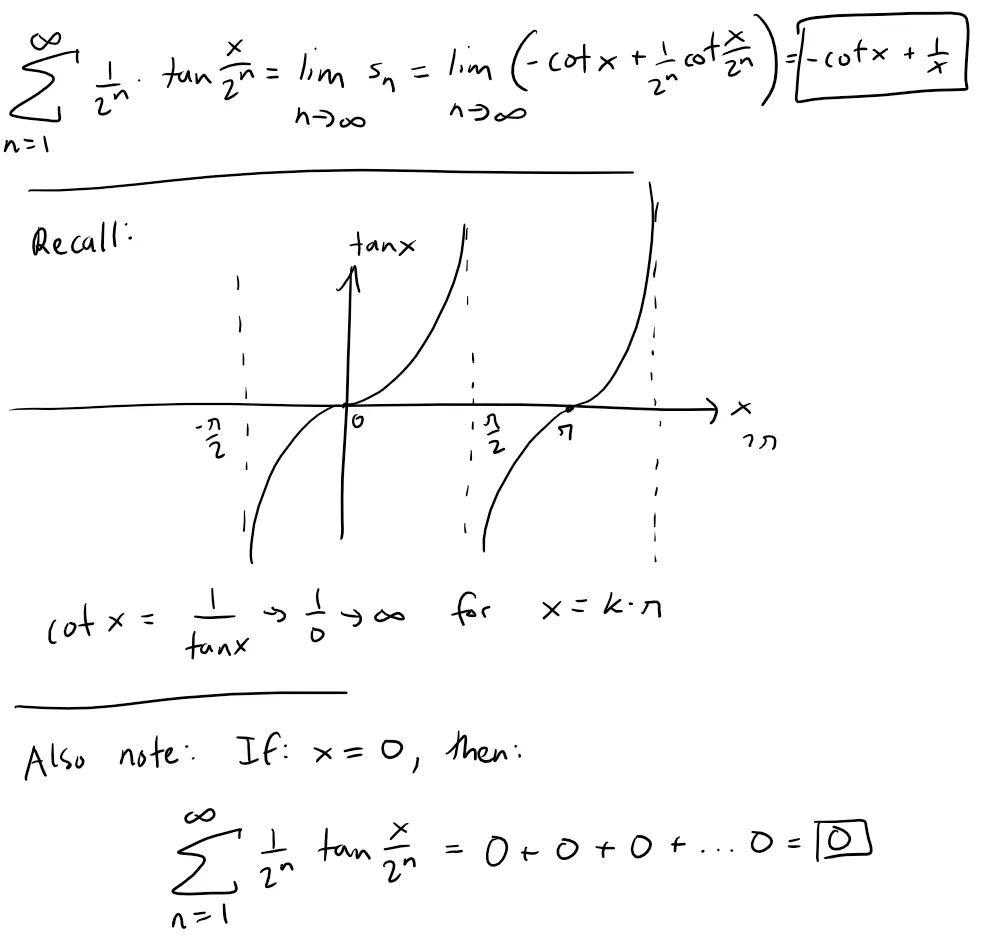 ∞
∑ 1/2ⁿ · tan x/2ⁿ = lim sₙ = lim (-cot x + 1/2ⁿ cot x/2ⁿ) = -cot x + 1/x
n=1 n→∞ n→∞
Recall:
tanx
-π/2 0 π/2 π x
cot x = 1/tanx → 1/0 → ∞ for x = k·π
Also note: If: x = 0, then:
∞
∑ 1/2ⁿ tan x/2ⁿ = 0 + 0 + 0 + ... 0 = 0
n=1